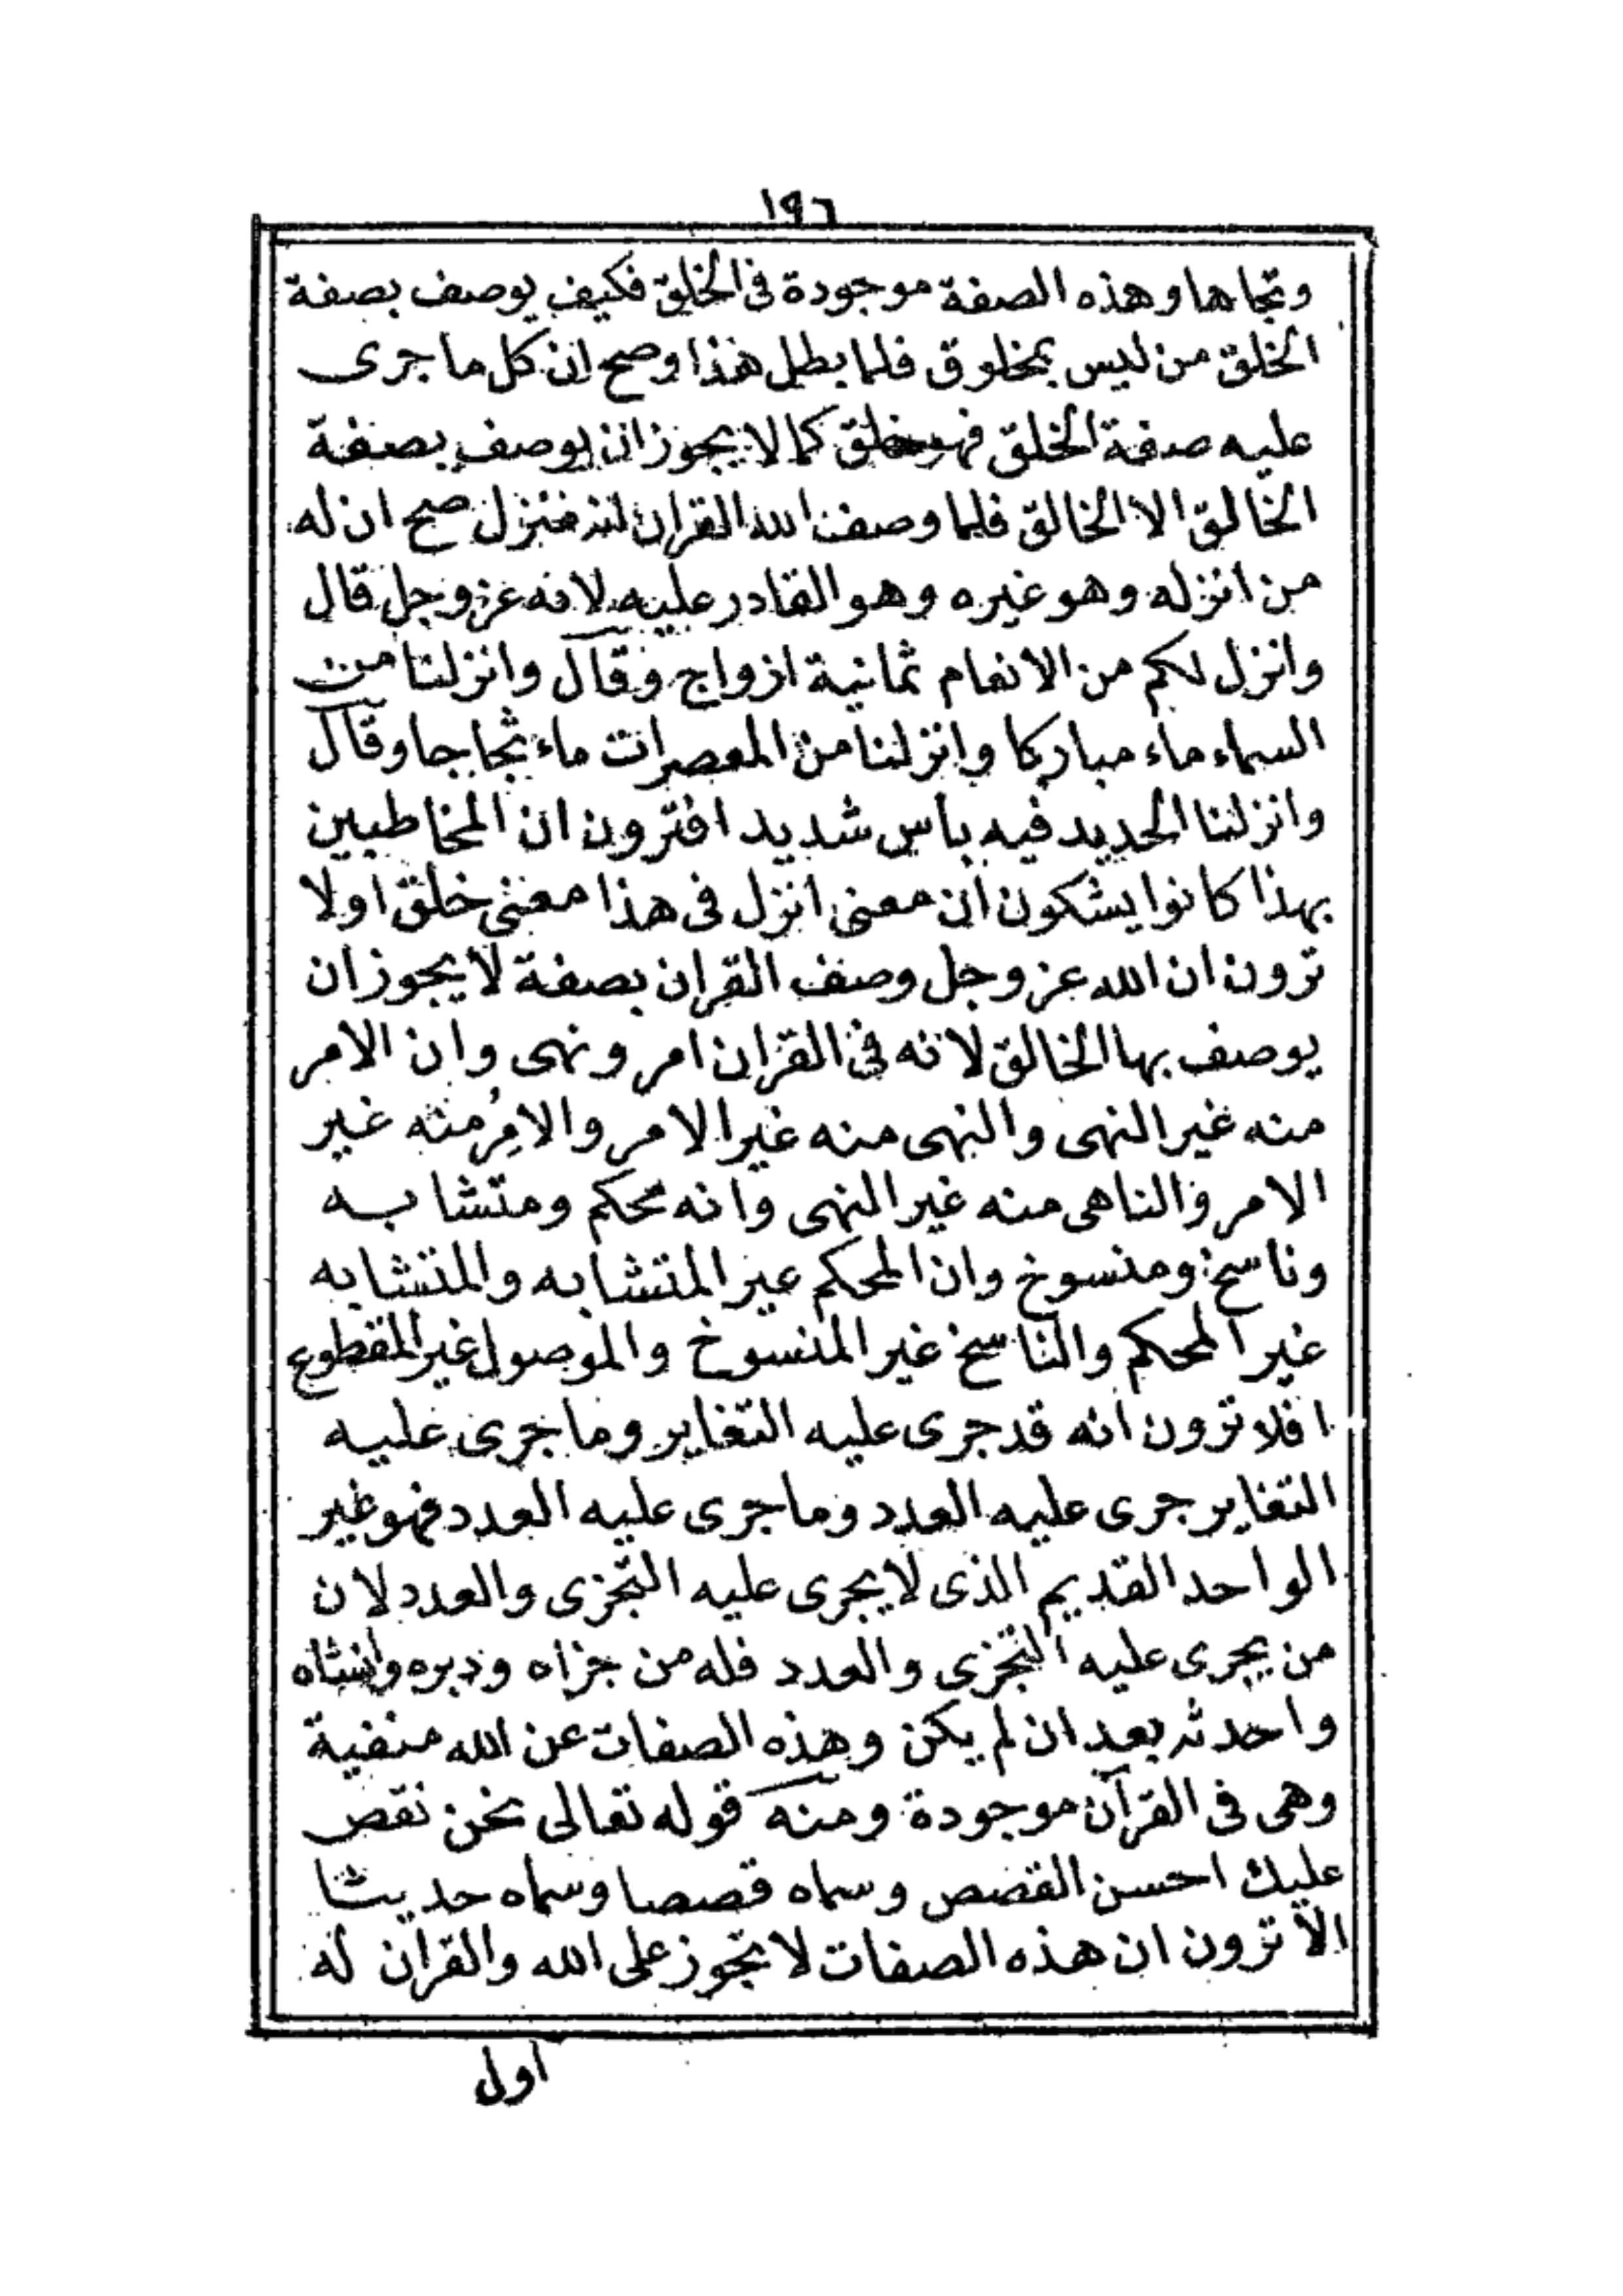 ١٩٦
وتجاها وهذه الصفة موجودة في الخلق فكيف يوصف بصفة
الخلق من ليس بمخلوق فلما بطل هذا وصح ان كل ما جرى
عليه صفة الخلق فهو خلق كما لا يجوز ان يوصف بصفة
الخالق الا الخالق فلما وصف الله القران منزل صح ان له
من انزله وهو غيره وهو القادر عليه لانه عز وجل قال
وانزل لكم من الانعام ثمانية ازواج وقال وانزلنا من
السماء ماء مباركا وانزلنا من المعصرات ماء ثجاجا وقال
وانزلنا الحديد فيه باس شديد افترون ان المخاطبين
بهذا كانوا يشكون ان معنى انزل فى هذا معنى خلق اولا
ترون ان الله عز وجل وصف القران بصفة لا يجوز ان
يوصف بها الخالق لانه في القران امر ونهى وان الامر
منه غير النهى والنهى منه غير الامر والامِرُ منه غير
الامر والناهى منه غير النهى وانه محكم ومتشابه
وناسخ ومنسوخ وان المحكم غير المتشابه والمتشابه
غير المحكم والناسخ غير المنسوخ والموصول غير المقطوع
افلا ترون انه قد جرى عليه التغاير وما جرى عليه
التغاير جرى عليه العدد وما جرى عليه العدد فهو غير
الواحد القديم الذى لا يجرى عليه التجزى والعدد لان
من يجرى عليه التجزى والعدد فله من جزاه ودبره وانشاه
واحدثه بعد ان لم يكن وهذه الصفات عن الله منفية
وهى فى القرآن موجودة ومنه قوله تعالى نحن نقص
عليك احسن القصص وسماه قصصا وسماه حديثا
الا ترون ان هذه الصفات لا تجوز على الله والقران له
اول